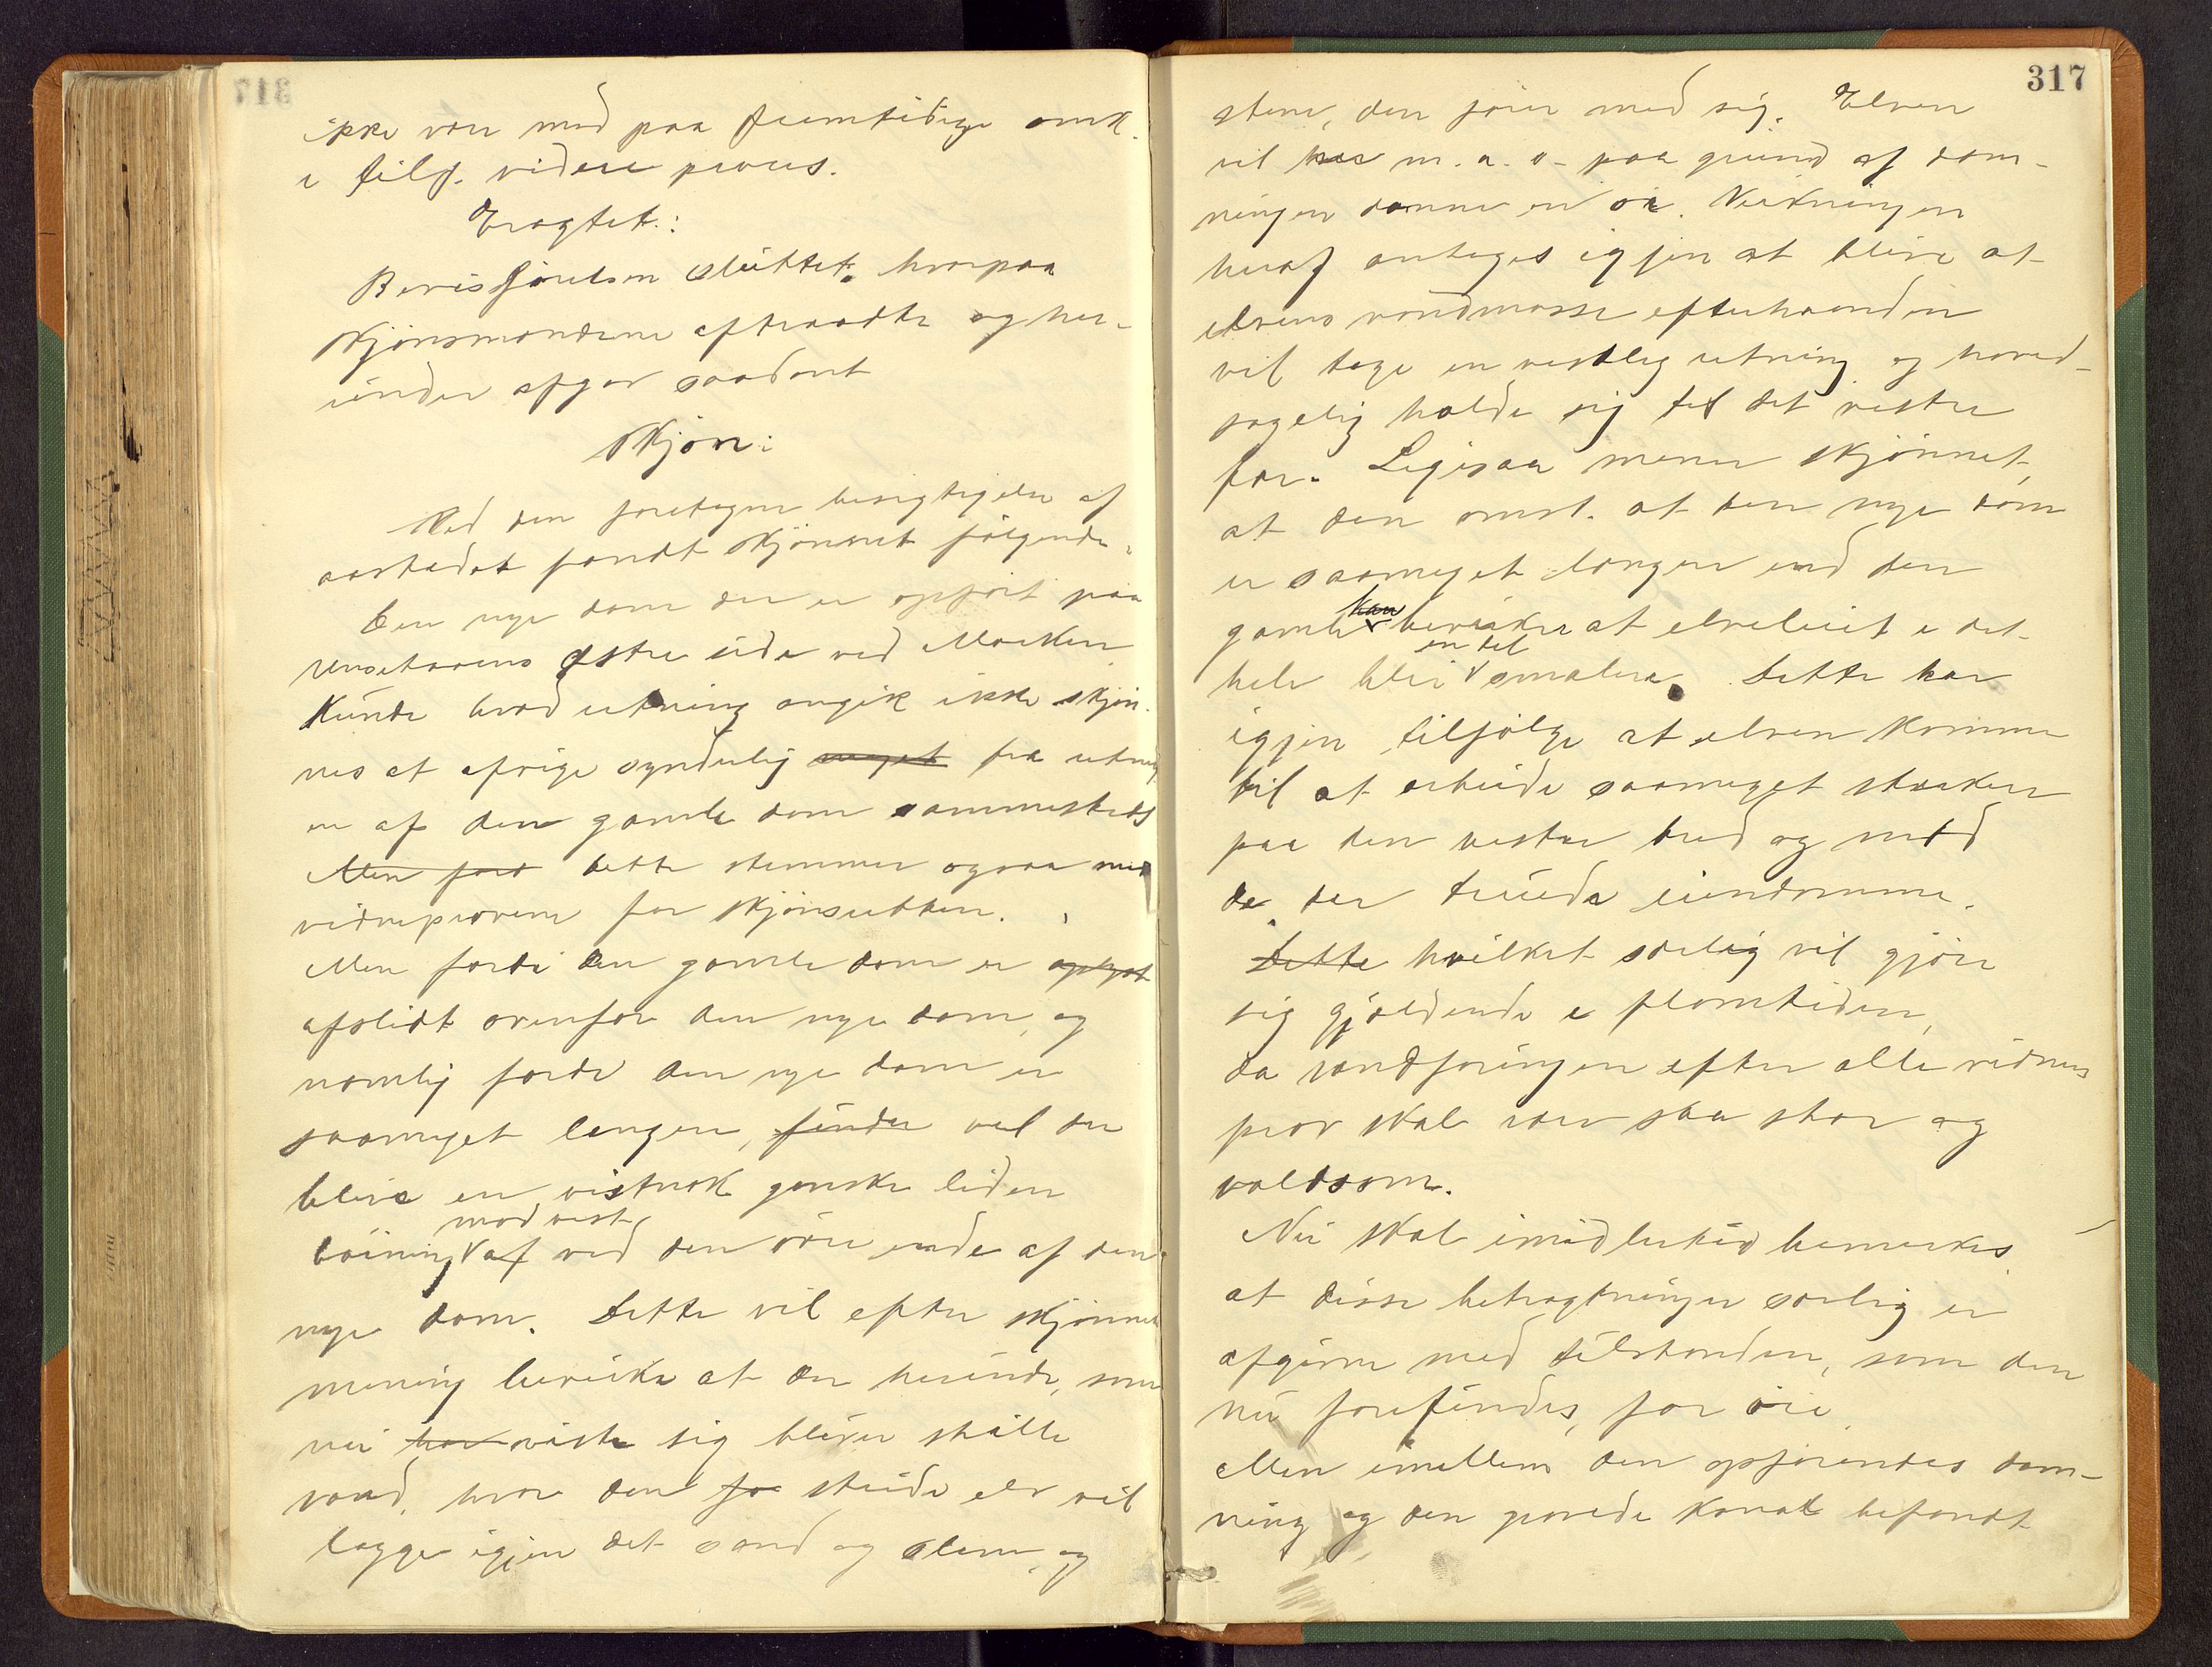 ikke var med paa fremtidige omk.
i tilf. videre proces.
Eragtet:
Bevisförelsen sluttet, hvorpaa
Skjönsmændene aftraadte og her-
under afgav saadant
Skjön:
Ved den foretagne besigtigelse af
aastedet fandt Skjönnet fölgende:
Den nye dam der er opfört paa
östre side ved
Kunde hvad retning angik ikke skjön-
nes at afvige synderlig meget fra retning
en af den gamle dam sammesteds
Men ford dette stemmer ogsaa med
vidneprovene for skjönsretten.
Men fordi den gamle dam er
afslidt ovenfor den nye dam, og
nemlig fordi den nye dam er
saameget længere, finder vil der
blive en vistnok ganske liden
mod vest
böining af ved den övre ende af den
nye dam. Dette vil efter skjönnets
mening bevirke at der herinde, som
nu har viste sig bliver stille
vand, hvor den for stride elv vil
lægge igjen det sand og slam, og
317
stene, den förer med sig. Elven
vil her m. a. o. paa grund af dæm-
ningen danne en ör. Virkningen
heraf antages igjen at blive at
elvens vandmasse efterhaanden
vil tage en vestlig retning og hoved-
sagelig holde sig til det vestre
far. Ligesaa mener skjönnet,
at den omst. at den nye dam
er saameget længer end den
kan
gamle bevirker at elveleiet i det
en del
hele blir smalere. Dette har
igjen tilfölge at elven kommer
til at arbeide saameget stærkere
paa den vestre bred og mod
de der eiendomme.
Dette hvilket særlig vil gjöre
sig gjældende i flomtiden,
da vandföringen efter alle vidnes
prov skal være saa stor og
voldsom.
Nu skal imidlertid bemerkes
at disse betragtninger særlig er
afgivne med tilstanden, som den
nu forefindes, for öie
Men imellem den opförendes dæm-
ning og den gravede kanal befandt